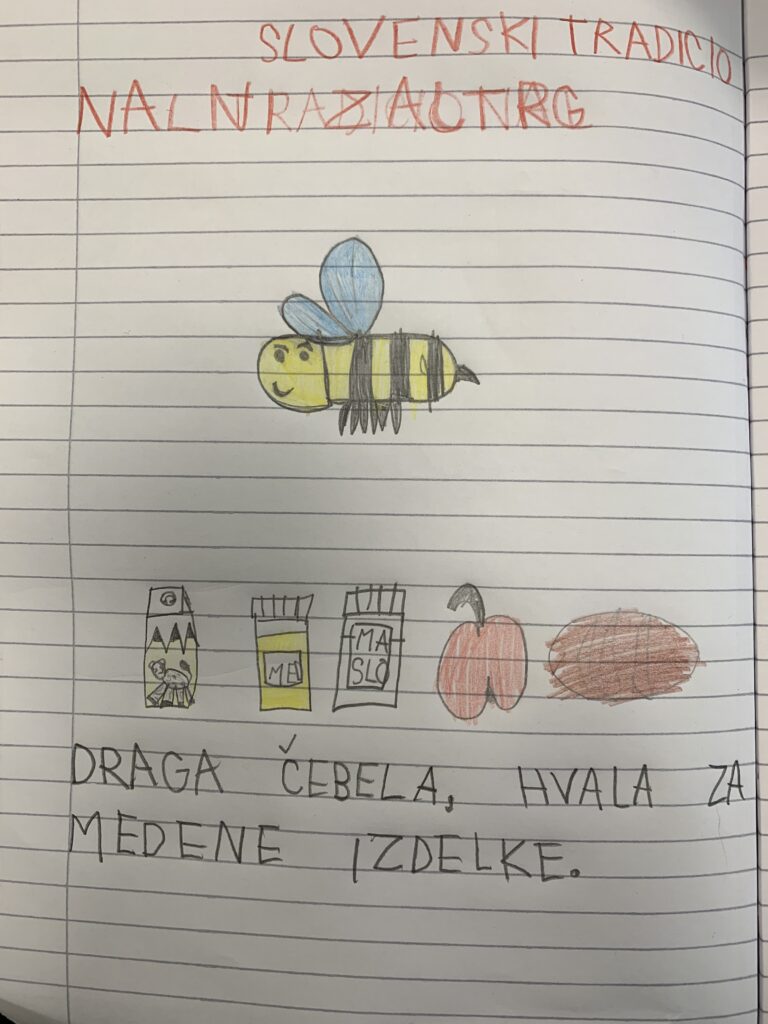 SLOVENSKI TRADICIO
NALN
MED
MA
SLO
DRAGA ČEBELA, HVALA ZA
MEDENE IZDELKE.